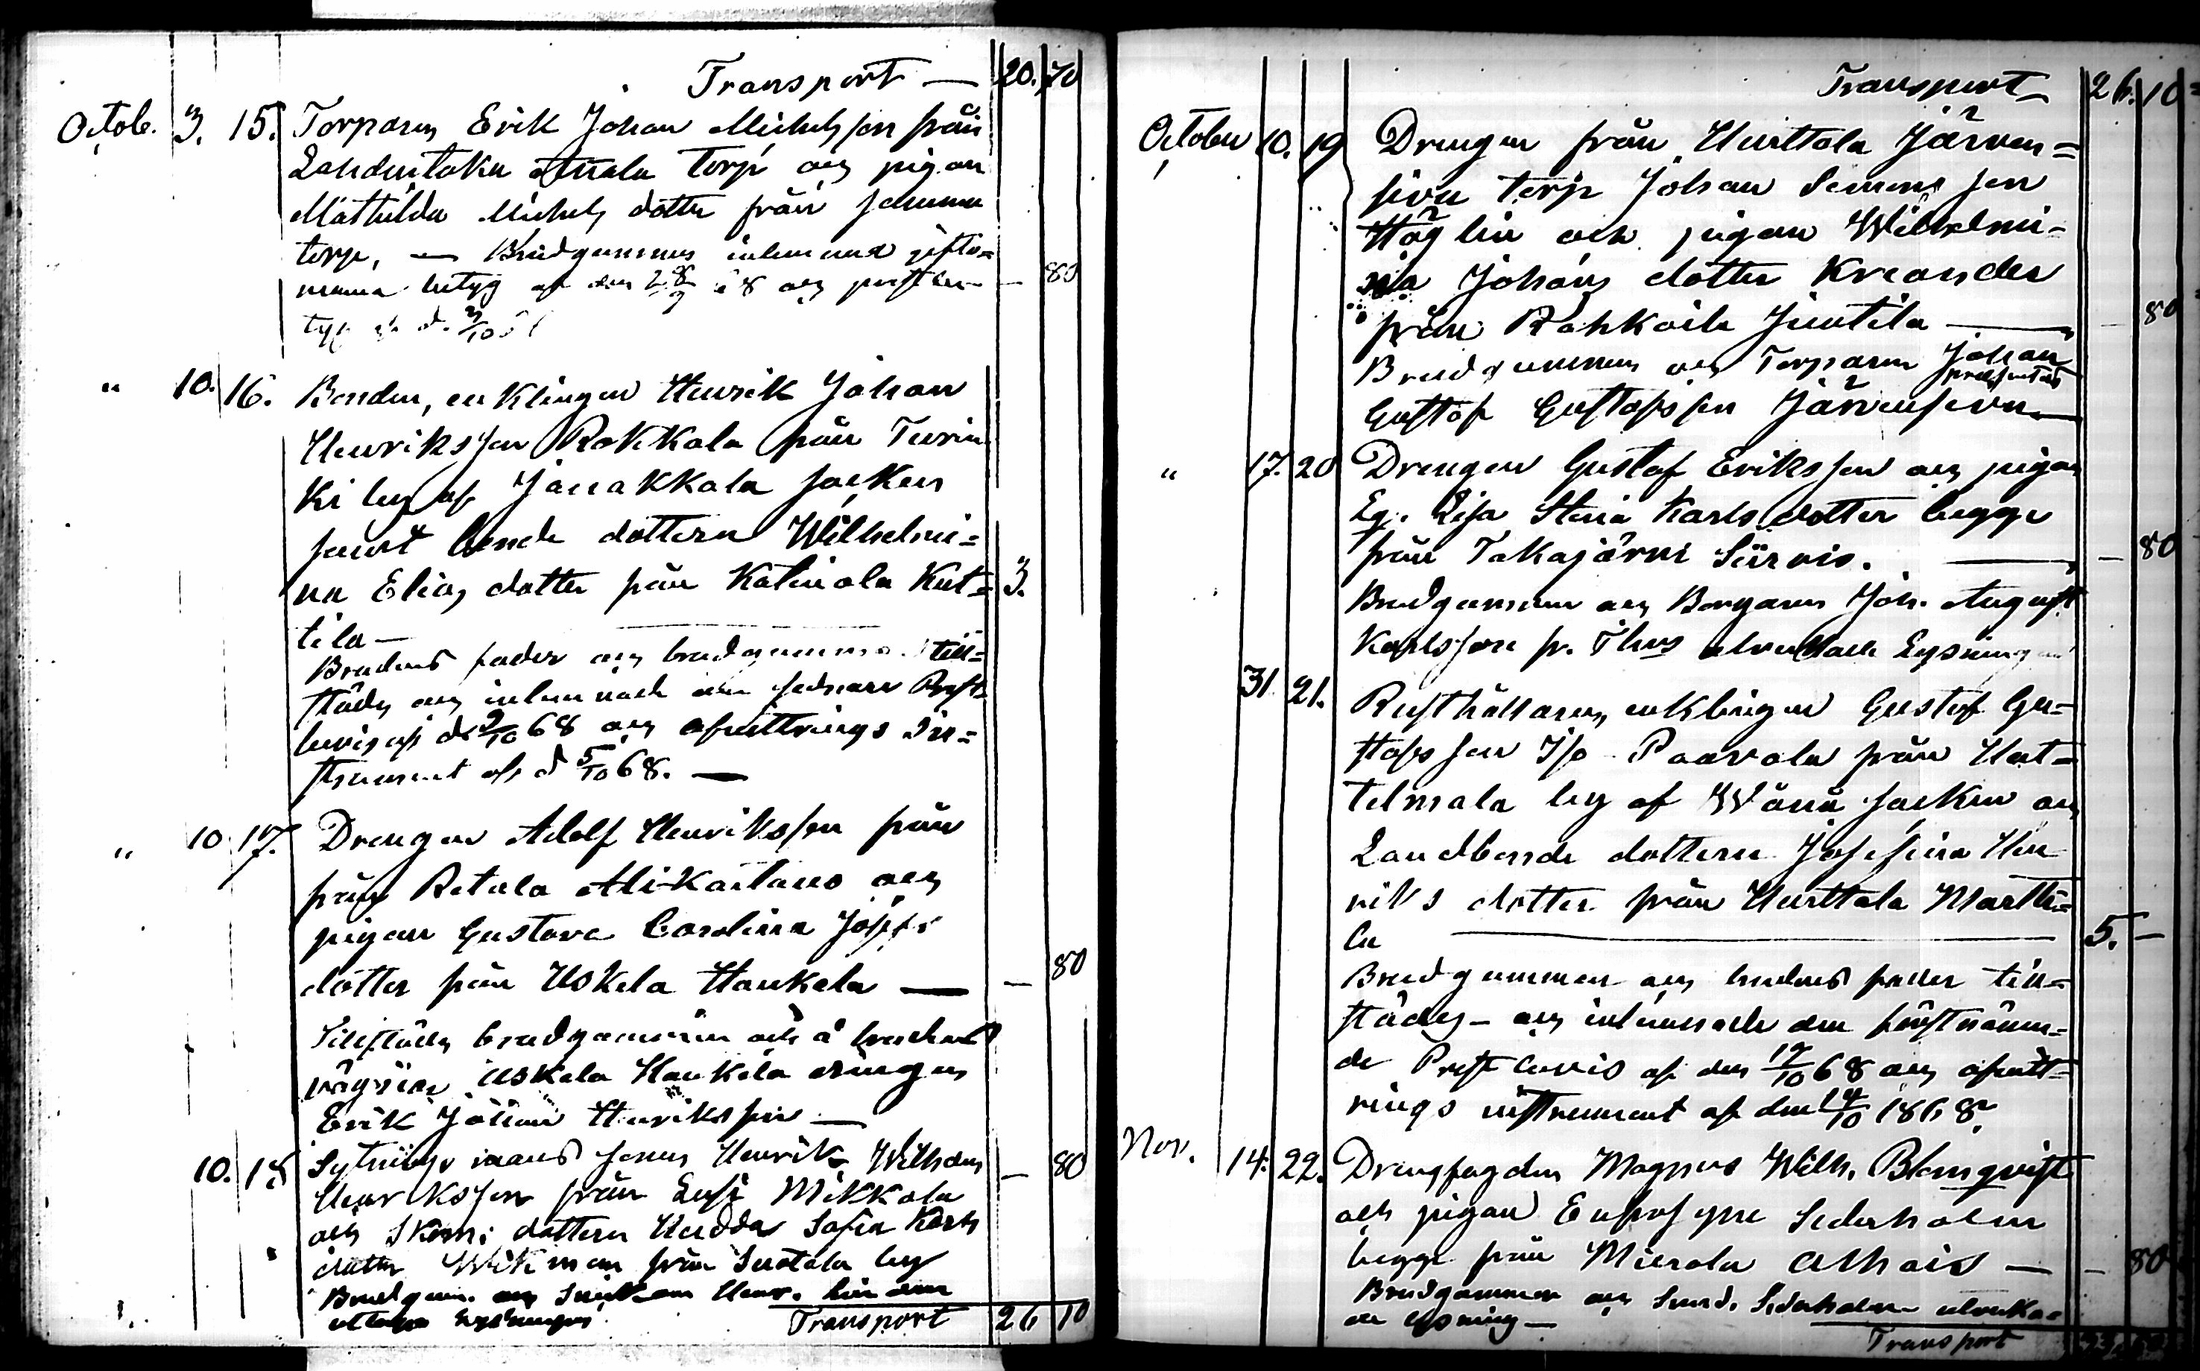 Transport — 20. 70
Octob. 3. 15. Torparen Erik Johan Michelsson från
torp och pigan
Mathilda Michels dotter från
torp, — Brudgummens
betyg af den 28/9 68 och — 80
3/10 68
" 10. 16. Bonden, enklingen Henrik Johan
Henriksson Rokkala från Turen
ki by af Janakkala socken
samt bonde dottern Wilhelmi=
na Elias dotter från Katinala Kut= 3.
tila —
Brudens fader och brudgummen till=
städes och inlemnade den sednare Prest
bevis af d 2/10 68 och afvittrings In=
strument af d 5/10 68. —
" 10 17. Drengen Adolf Henriksson från
från Retula Alikartano och
pigan Gustava Carolina Josefs
dotter från Uskela Haukela — — 80
Tillstädes brudgummen och å brudens
vägnar Uskela Haukela drengen
Erik Johan Henriksson —
10. 18 Sytnings mans sonen Henrik Wilhelm — 80
Henriksson från Mikkola
och Skom: dottern Hedda Sofia Karls
dotter Wikman från by
Brudgum. och Henr.
uttogo lysningen
Transport 26 10
Transport 26. 10
October 10. 19 Drengen från Hurttala Järven=
sivu torp Johan Simonsson
Höglin och pigan Wilhelmi=
na Johans dotter Kreander
från Rahkoila Juntila — — 80
Brudgummen och Torparen Johan
Gustaf Gustafsson Järvensivu —
" 17. 20 Drengen Gustaf Eriksson och pigan
Eg. Lisa Stina Karls dotter begge
från Takajärvi Siirois. — — 80
Brudgummen och Borgaren Joh. August
Karlsson fr. Thus utverkade Lysningen
31 21. Rusthållaren, enklingen Gustaf Gu=
stafsson Iso Paavola från Hat=
telmala by af Wånå socken och
Landbonde dottern Josefina Hen
riks dotter från Hurttala Martti=
la — 5. —
Brudgummen och brudens fader till=
städes — och inlemnade den förstnämn=
de Prest bevis af den 17/10 68 och afvitt=
rings instrument af den 14/10 1868.
Nov. 14. 22. Drengfogden Magnus Wilh. Blomqvist
och pigan Eufrosyne Sederholm
begge från Mierola Alhais — — 80
Brudgummen och Smed. Sederholm utverka=
de lysning —
Transport